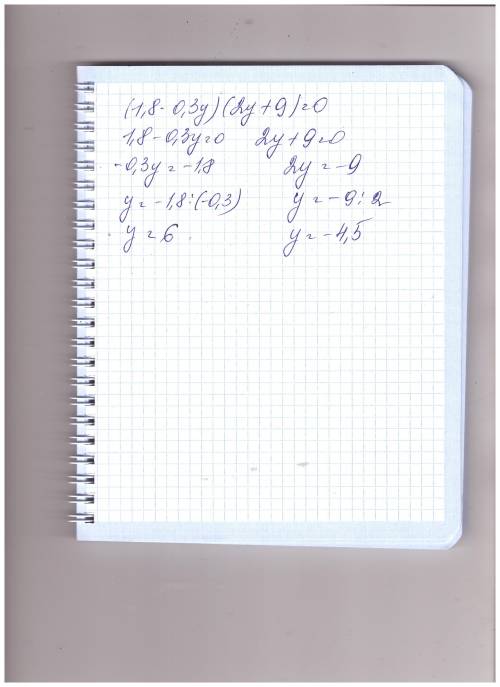 (1,8-0,3y)(2y+9)=0
1,8-0,3y=0 2y+9=0
-0,3y=-1,8 2y=-9
y=-1,8:(-0,3) y=-9:2
y=6 y=-4,5